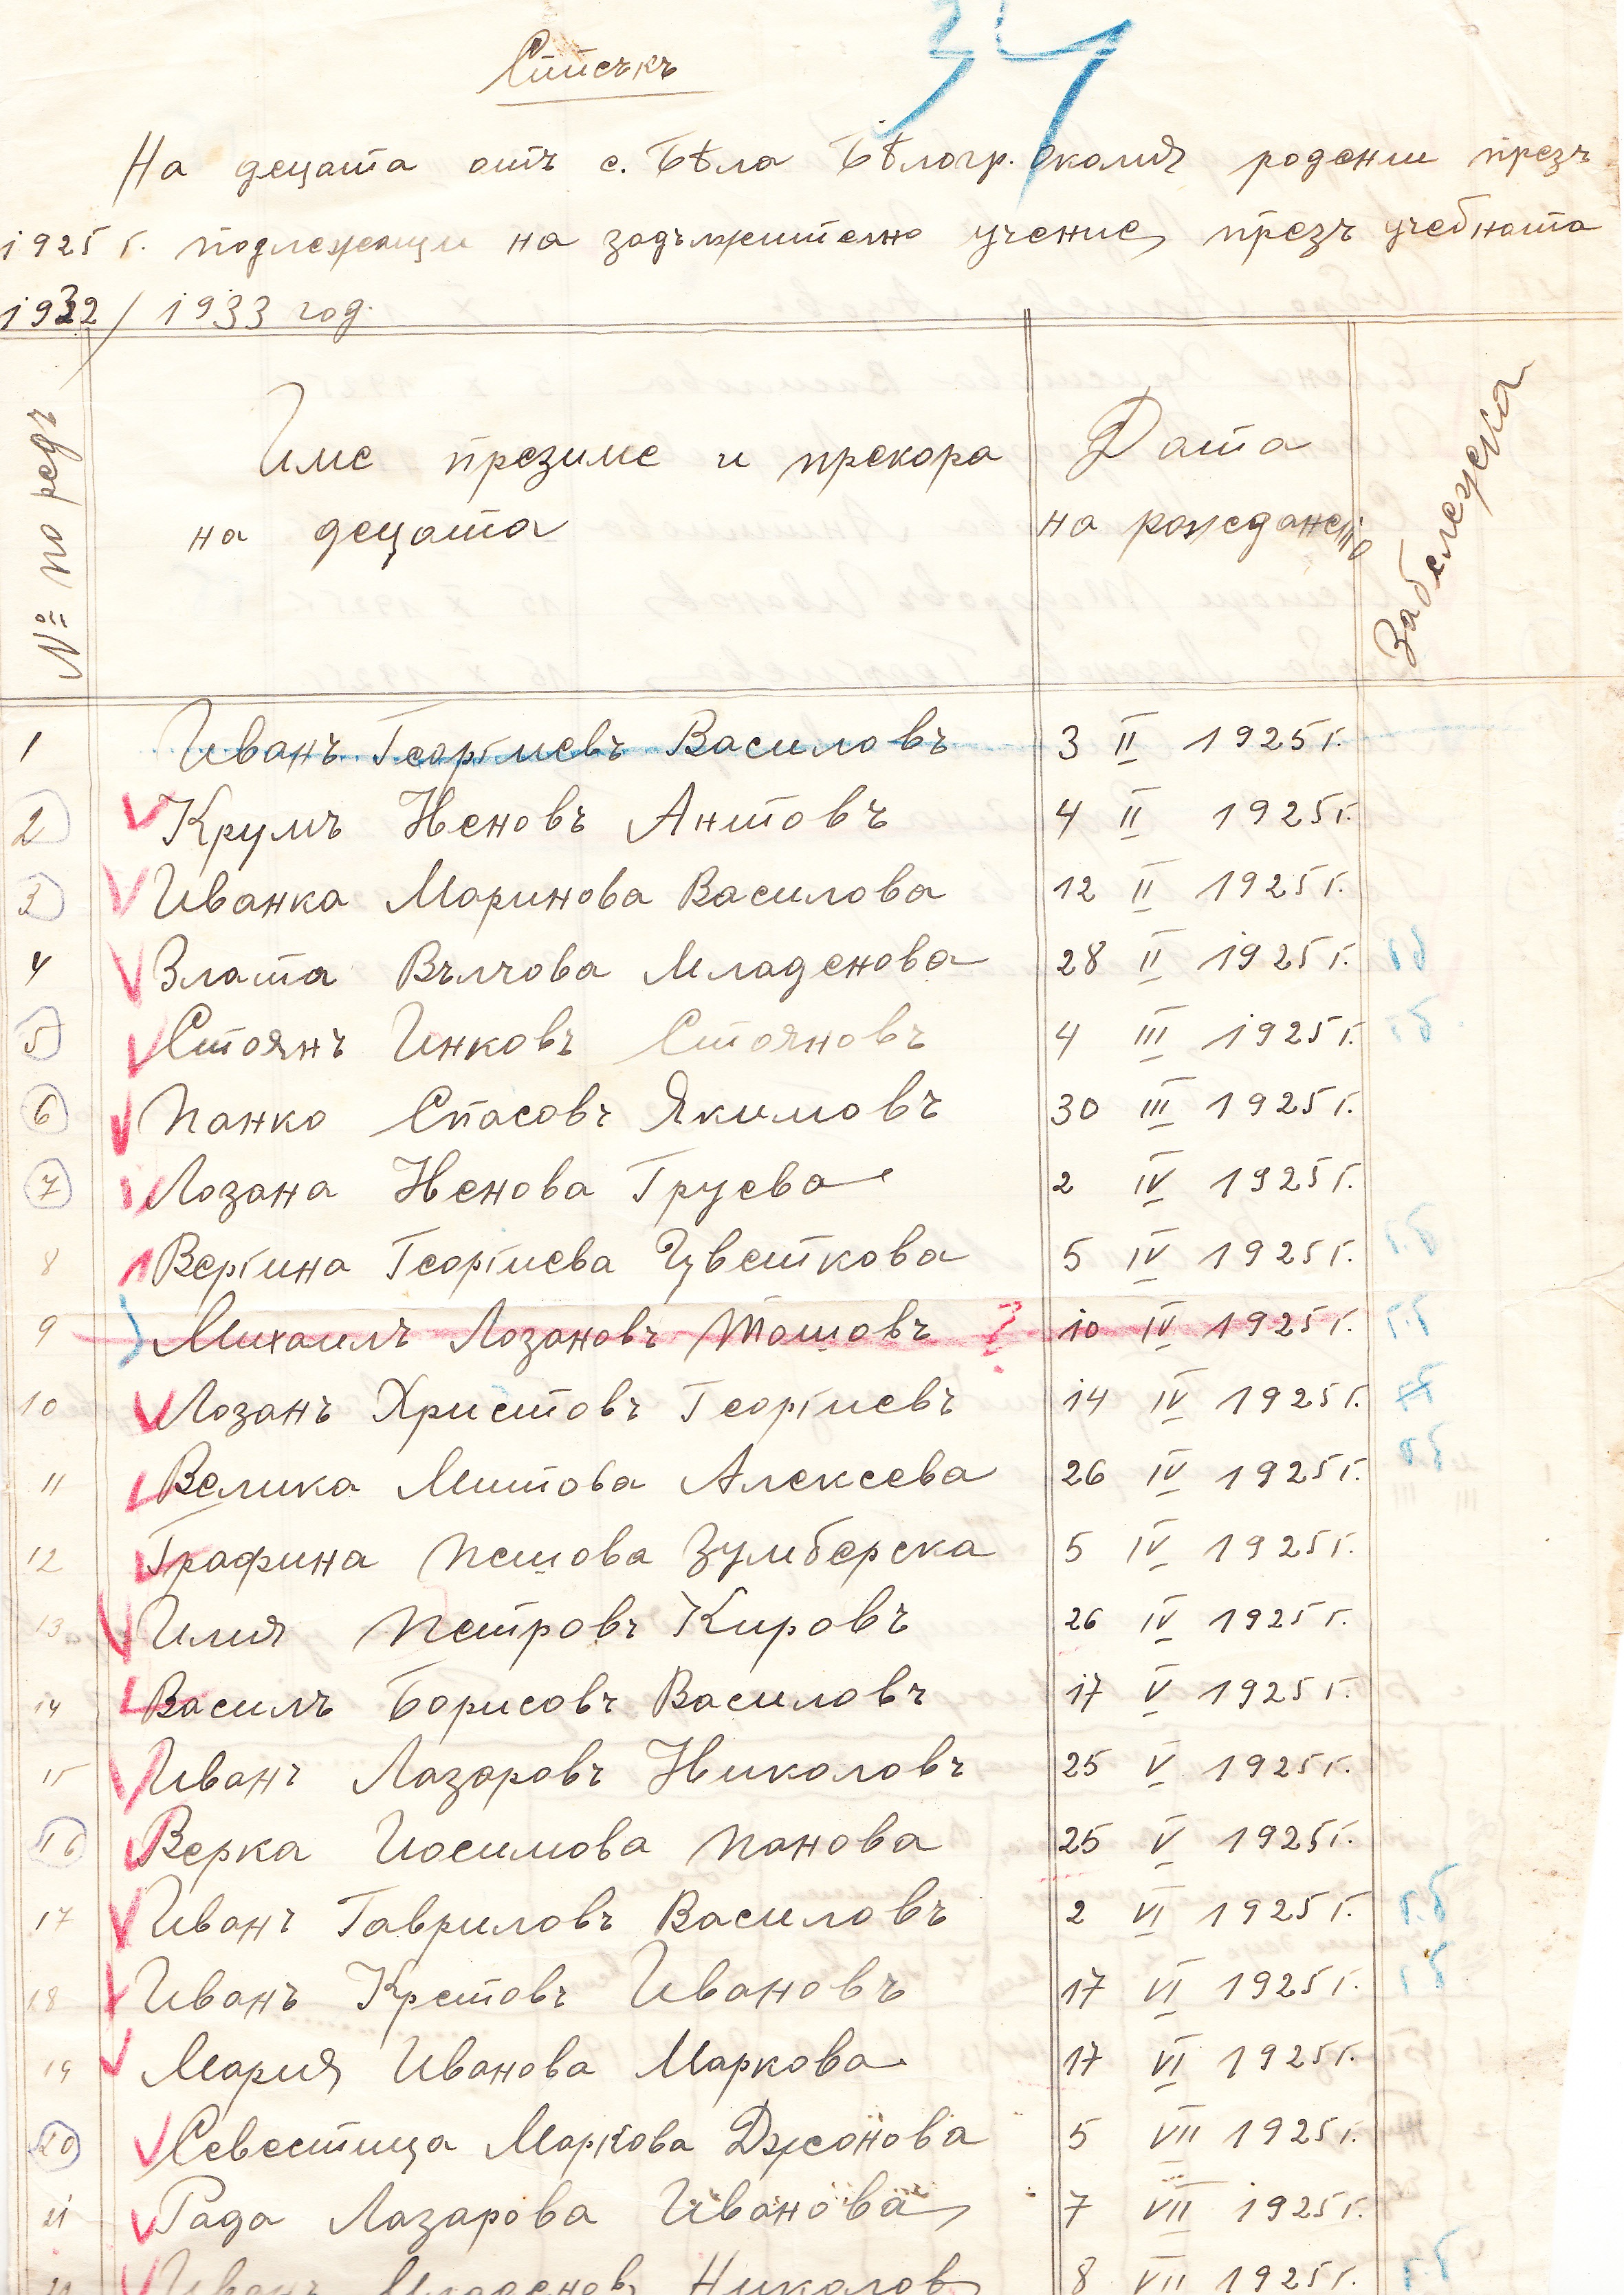 34
Списъкъ
На децата отъ с. Бѣла Бѣлогр. околия родени презъ
1925 г. подлежащи на задължително учение, презъ учебната
1932 / 1933 год.
№ по редъ
Име презиме и прекора
на децата
Дата
на рождането
Забележка
1 Иванъ Георгиевъ Василовъ 3 II 1925 г.
2 Крумъ Неновъ Антовъ 4 II 1925 г.
3 Иванка Маринова Василова 12 II 1925 г.
4 Злата Вълчова Младенова 28 II 1925 г.
5 Стоянъ Инковъ Стояновъ 4 III 1925 г.
6 Панко Спасовъ Якимовъ 30 III 1925 г.
7 Лозана Ненова Груева 2 IV 1925 г.
8 Вергина Георгиева Цветкова 5 IV 1925 г.
9 Михаилъ Лозановъ Тошовъ ? 10 IV 1925 г.
10 Лозанъ Христовъ Георгиевъ 14 IV 1925 г.
11 Велика Митова Алексеева 26 IV 1925 г.
12 Графина Пешова Зумберска 5 IV 1925 г.
13 Илия Петровъ Кировъ 26 IV 1925 г.
14 Василъ Борисовъ Василовъ 17 V 1925 г.
15 Иванъ Лазаровъ Николовъ 25 V 1925 г.
16 Верка Иосимова Панова 25 V 1925 г.
17 Иванъ Гавриловъ Василовъ 2 VI 1925 г.
18 Иванъ Крстовъ Ивановъ 17 VI 1925 г.
19 Мария Иванова Маркова 17 VI 1925 г.
20 Севестица Маркова Джонова 5 VII 1925 г.
21 Рада Лазарова Иванова 7 VII 1925 г.
22 Иванъ Младеновъ Николовъ 8 VII 1925 г.